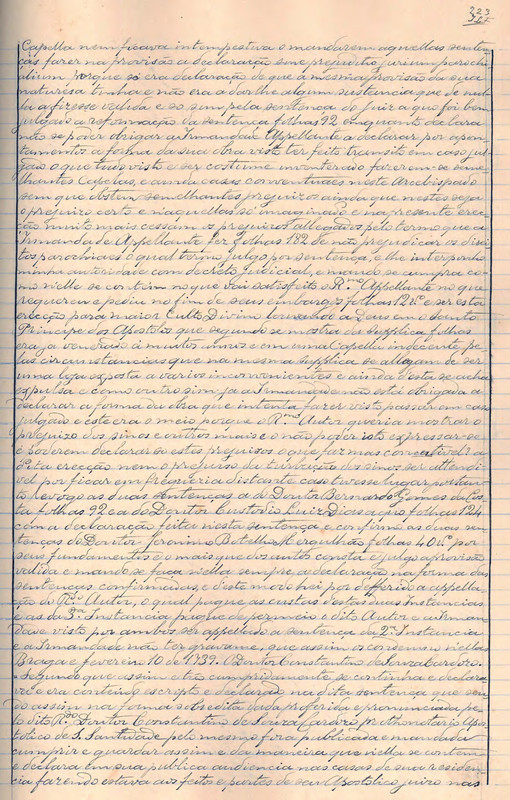 223
Capella nem ficava intempestiva o mandarem aquellas senten-
ças fazer na provisão a declaração sine prejuditio jurium parochi-
alium porque só era declaração de que a mesma provisão da sua
naturesa tinha e não era a dar lhe algum sustancia que de nul-
la a fizesse valida e so sim pela sentença do Juiz a quo foi bem
julgado a reformação da sentença folhas 92 emquanto declara
não se poder obrigar a Irmandade Appellante a declarar por apon-
tamentos a forma da sua obra visto ter feito transito em caso jul-
gado o que tudo visto e ser costume inveterado fazerem-se seme-
lhantes Capelas, e ainda casas conventuaes neste Arcebispado
sem que obstem semelhantes prejuizos ainda que nestes seja
o prejuizo certo e n'aquellas só imaginario e na presente erec-
ção muito mais cessam os prejuizos allegados pelo termo que a
Irmandade Appellante fez folhas 182 de não prejudicar os direi-
tos parochiaes o qual termo julgo por sentença, e lhe interponho
minha autoridade com decreto judicial, e mando se cumpra co-
mo nelle se contem no que vai satisfeito o R.mo Appellante no que
requereu e pediu no fim de seus embargos folhas 12 e ser esta
erecção para maior Culto Divino louvando a Deus em o Santo
Principe dos Apostolos que segundo se mostra da supplica folhas
era ja venerado á muitos annos em uma Capella indecente pe-
las circunstancias que na mesma supplica se allegam de ser
uma loja exposta a varios inconvenientes e ainda d'esta se acha
expulsa e como outro sim ja a Irmandade não está obrigada a
declarar a forma da obra que intenta fazer visto passar em caso
julgado e este era o meio porque o R.mo Autor queria mostrar o
prejuizo dos sinos e outros mais e não poder isto expressar-se
e poderem declarar se estes prejuizos o que faz mas
dita erecção nem o prejuizo da turbação dos sinos ser attendi-
vel por ficar em freguezia distante caso tivesse lugar portan-
to revogo as duas sentenças a do Doutor Bernardo Gomes da Cos-
ta folhas 92 e a do Doutor Custodio Luiz Dias a folhas 124
com a declaração feita nesta sentença e confirmo as duas sen-
tenças do Doutor Jeronimo Botelho Mergulhão folhas 40 por
seus fundamentos e o mais que dos autos consta e julgo a provisão
valida e mando se faça n'ella sempre a declaração na forma das
sentenças confirmadas, e d'este modo hei por defferido a appella-
ção do R.do Autor, o qual pague as custas d'estas duas Instancias
e as da 3.ª Instancia pague de permeio o dito Autor e a Irman-
dade visto por ambos ser appellado a sentença da 2.ª Instancia
e a Irmandade não ter gravame, que assim os condemno n'ellas
Braga e fevereiro 10 de 1739. O Doutor Constantino de Souza Cardozo.
Segundo que assim e tão cumpridamente se continha e declara-
va e era contheudo escripto e declarado na dita sentença que sen-
do assim na forma sobredita dada proferida e pronunciada pe-
lo dito R.mo Doutor Constantino de Souza Cardozo prothonotario Apos-
tolico de S. Santidade pelo mesmo fora publicada e mandada
cumprir e guardar assim e da maneira que n'ella se contem
e declara em sua publica audiencia nas casas de sua residen-
cia fazendo estava aos feitos e partes de seu Apostolico juizo nas